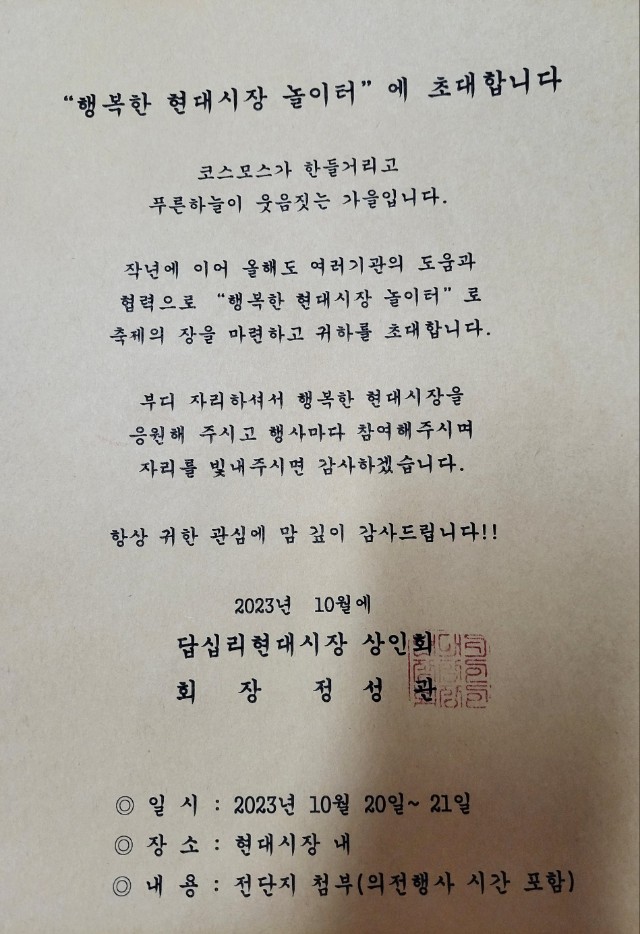 “행복한 현대시장 놀이터” 에 초대합니다
코스모스가 한들거리고
푸른하늘이 웃음짓는 가을입니다.
작년에 이어 올해도 여러기관의 도움과
협력으로 “행복한 현대시장 놀이터” 로
축제의 장을 마련하고 귀하를 초대합니다.
부디 자리하셔서 행복한 현대시장을
응원해 주시고 행사마다 참여해주시며
자리를 빛내주시면 감사하겠습니다.
항상 귀한 관심에 맘 깊이 감사드립니다!!
2023년 10월에
답십리현대시장 상인회
회 장 정 성 관
◎ 일 시 : 2023년 10월 20일~ 21일
◎ 장 소 : 현대시장 내
◎ 내 용 : 전단지 첨부(의전행사 시간 포함)